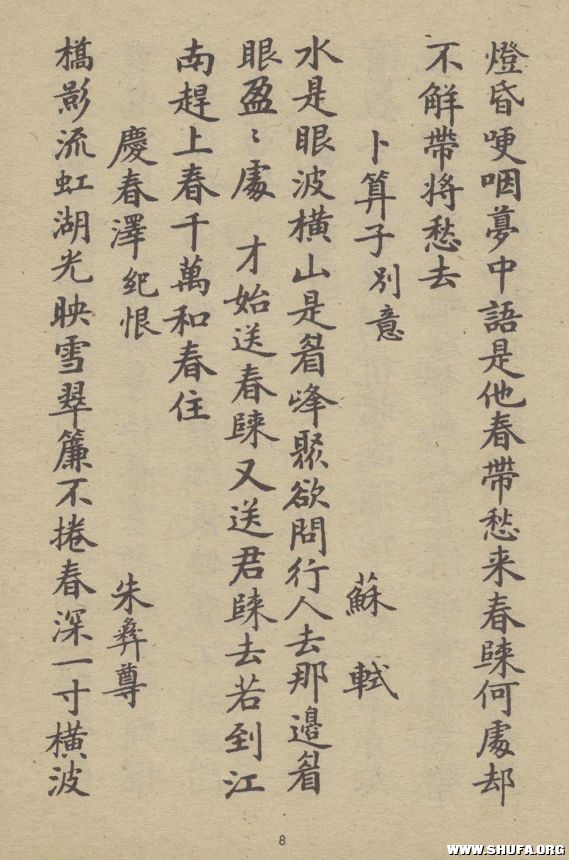 燈昏哽咽夢中語是他春帶愁来春歸何處却
不解帶將愁去
卜算子 别意 蘇軾
水是眼波横山是眉峰聚欲問行人去那邊眉
眼盈〻處 才始送春歸又送君歸去若到江
南趕上春千萬和春住
慶春澤 紀恨 朱彝尊
橋影流虹湖光映雪翠簾不捲春深一寸横波
8
WWW.SHUFA.ORG